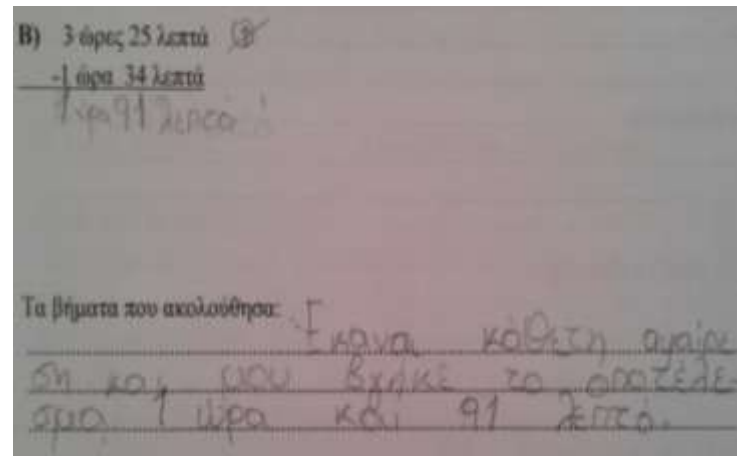 Β) 3 ώρες 25 λεπτά
-1 ώρα 34 λεπτά
1 ώρα 91 λεπτά
Τα βήματα που ακολούθησα: Έκανα κάθετη αφαίρε
ση και μου βγήκε το αποτέλε-
σμα 1 ώρα και 91 λεπτά.